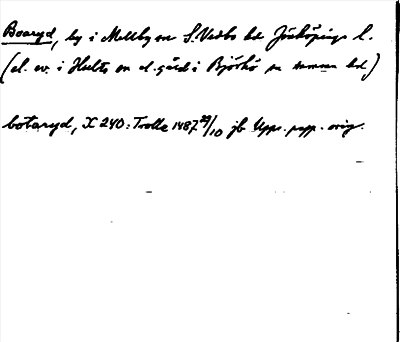 Boaryd, by i Mellby sn S.Vedbo hd Jönköpings l.
(el. ev. i Hults sn el. gård i Björkö sn samma hd.)
botaryd, X 240: Trolle 1487 29/10 jb Upps. papp. orig.